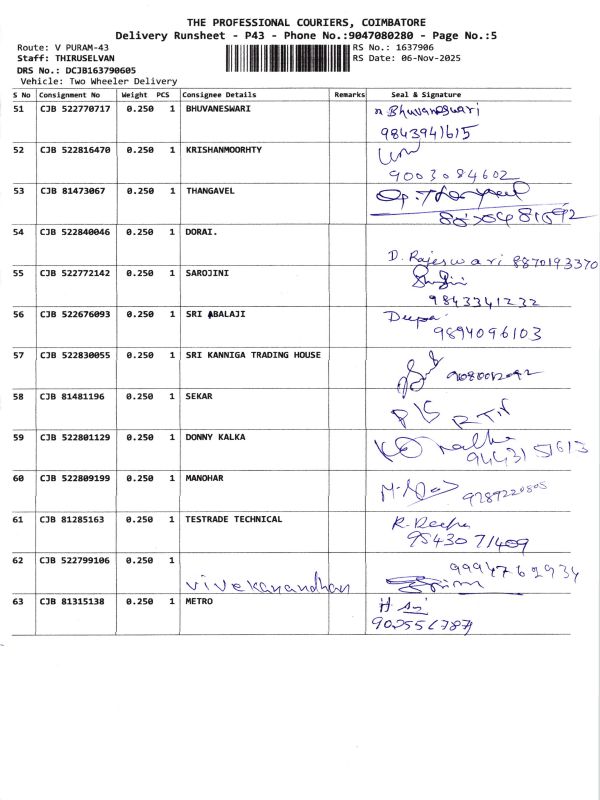 THE PROFESSIONAL COURIERS, COIMBATORE
Delivery Runsheet - P43 - Phone No.:9047080280 - Page No.:5
Route: V PURAM-43 RS No.: 1637906
Staff: THIRUSELVAN RS Date: 06-Nov-2025
DRS No.: DCJB163790605
Vehicle: Two Wheeler Delivery
S No Consignment No Weight PCS Consignee Details Remarks Seal & Signature
51 CJB 522770717 0.250 1 BHUVANESWARI Bhuvaneswari
9843941615
52 CJB 522816470 0.250 1 KRISHANMOORHTY
9003084602
53 CJB 81473067 0.250 1 THANGAVEL
54 CJB 522840046 0.250 1 DORAI.
D. Rajeswari 8870193370
55 CJB 522772142 0.250 1 SAROJINI
9843341232
56 CJB 522676093 0.250 1 SRI ABALAJI Deepa
9894096103
57 CJB 522830055 0.250 1 SRI KANNIGA TRADING HOUSE
58 CJB 81481196 0.250 1 SEKAR
59 CJB 522801129 0.250 1 DONNY KALKA
9443151613
60 CJB 522809199 0.250 1 MANOHAR
9289220805
61 CJB 81285163 0.250 1 TESTRADE TECHNICAL R. Deepa
9543071409
62 CJB 522799106 0.250 1 9994762934
vivekanandhan
63 CJB 81315138 0.250 1 METRO